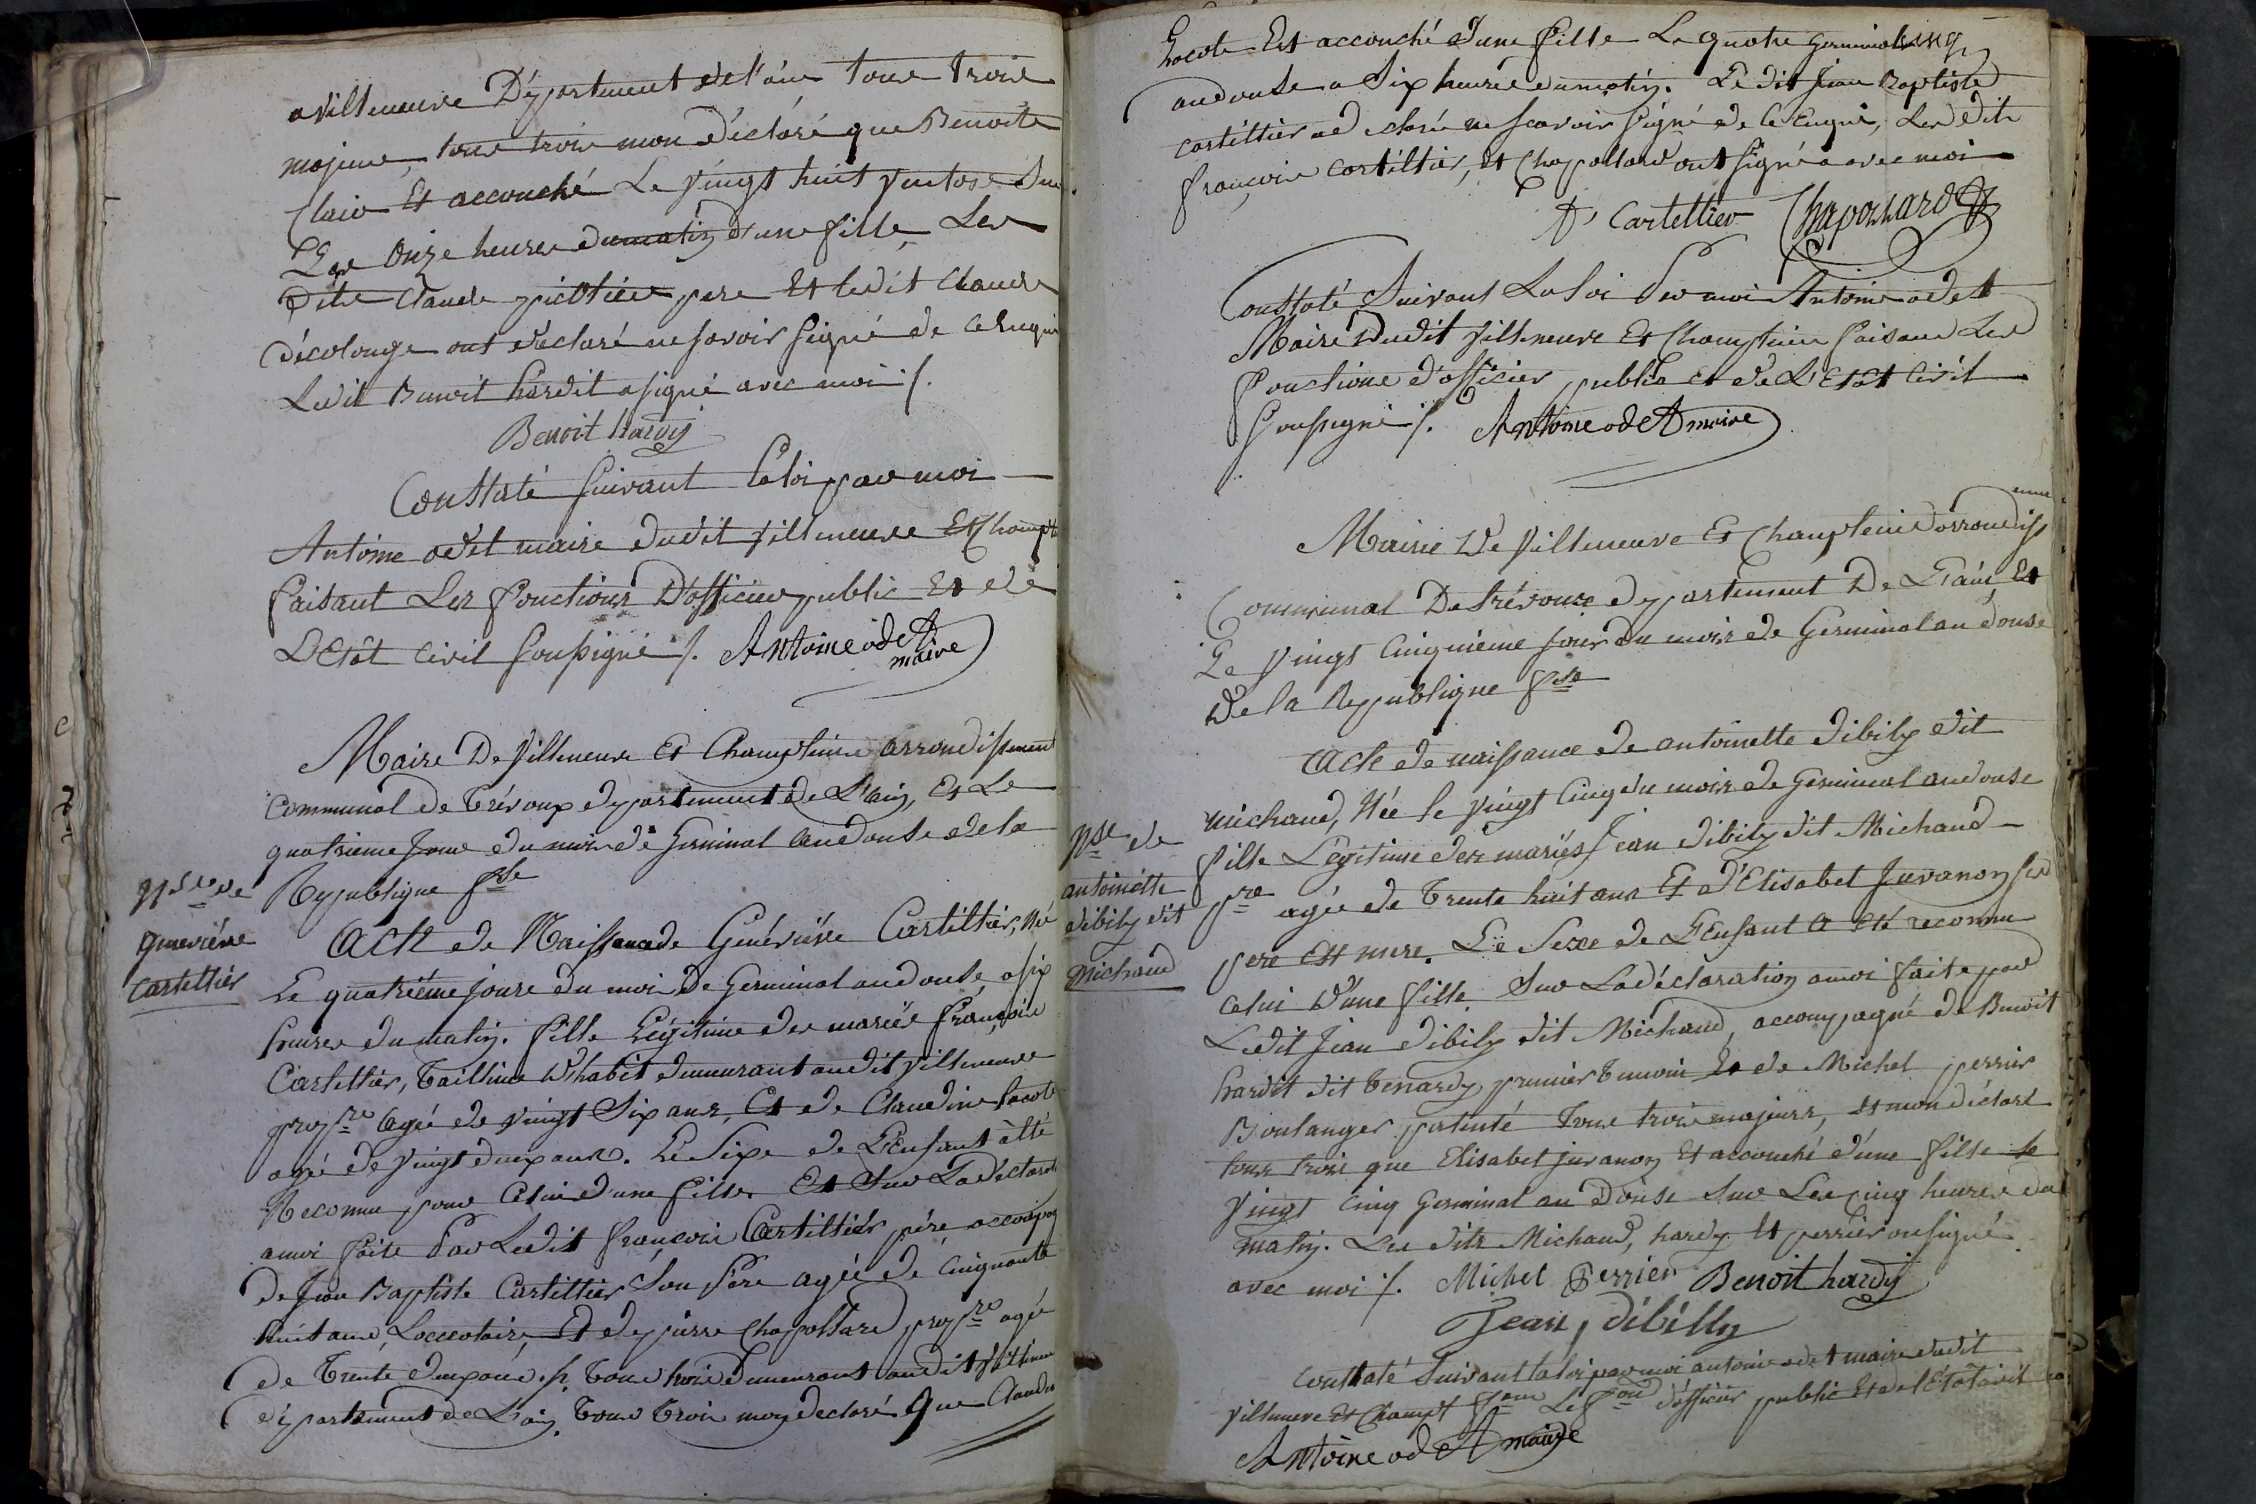 a villeneuve Département de l'ain tous trois
majeurs, tous trois mon déclaré que Benoite
Clair Et accouché Le vingt huit ventose Sur
Les Onze heures du matin d'une fille, Les
dits Claude père Et ledit Claude
décolonge ont déclaré ne savoir signé de ce Enquis
Ledit Benoit hardit a signé avec moi ./.
Benoit hardy
Constaté suivant la loi par moi
Antoine odet maire dudit villeneuve Et Champt
faisant Les fonctions D'officier public Et de
L'Etat civil soussigné ./. Antoine odet
maire
Maire De villeneuve Et Champteins arrondissement
communal de Trévoux departement de L'ain, Et Le
quatrieme Jour du mois de Germinal an douse de la
Republique fse
Nsce de
genevieve
Cartellier
Acte de Naissance de Genévieve Cartillier, Né
Le quatriéme jours du moi De Germinal an douse, a six
heures du matin. fille Légitime des mariés françois
Cartellier, Tailleur D'habit demeurant audit villeneuve
propre agé de vingt Six ans, Et de Claudine Lacote
agé de vingt deux ans. Le Sexe de L'Enfant a été
Reconnu pour Celui d'une fille. Et Sur La déclarat
a moi faite Par Ledit françois Cartillier père accompag
de Jean Baptiste Cartillier Son Père agée de Cinquante
huit ans, Loccataire, Et de pierre Chapollard propre agé
de Trente deux ans. p. Tous trois Demeurant audit villeneuve
département de L'ain, Tous Trois mon declaré Que Claudine
Lacote Est accouché d'une fille Le quatre germinal
an douse a Six heures du matin. Le dit Jean Baptiste
Cartillier a declaré ne scavoir signé de ce Enquis, Les dits
françois Cartillier, Et Chapollard ont signé avec moi
f. Cartellier Chapollard
Constaté Suivant La loi Par moi Antoine odet
Maire Dudit villeneuve Et Champtein faisant Les
fonctions d'officier public et de L'Etat Civil
Soussigné ./. Antoine odet maire
Mairie De villeneuve Et Chaptein D'arrondissemens
Communal De trévoux departement De L'ain Et
Le vingt Cinquieme jour du mois de Germinal an douse
De la Republique fse
Nse de
antoinette
dibily dit
Michaud
Acte de naissance de antoinette dibily dit
michaud, Née le vingt Cinq du mois de Germinal an douse
fille Légitime des mariés Jean dibily dit Michaud
pre agée de Trente huit ans Et d'Elisabet Juvanon Ses
pere Et mere. Le Sexe de L'Enfant a été reconnu
celui d'une fille Sur La déclaration a moi faite par
Ledit Jean dibily dit Michaud, accompagné de Benoit
hardit dit Tenardy premier Temoin Et de Michel perrier
Boulanger patenté Tous trois majeurs, et mon déclaré
tous trois que Elisabet juvanon Et accouché d'une fille le
vingt Cinq Germinal an Douse Sur Les cinq heures du
matin. Les dits Michaud, hardy Et perrier on signé
avec moi ./. Michel Perrier Benoit hardy
Jean, dibilly
Constaté Suivant la loi par moi antoine odet maire dudit
villeneuve Et Champt fsant Les fons d'officier public Et de l'Etat Civil
Antoine odet maire